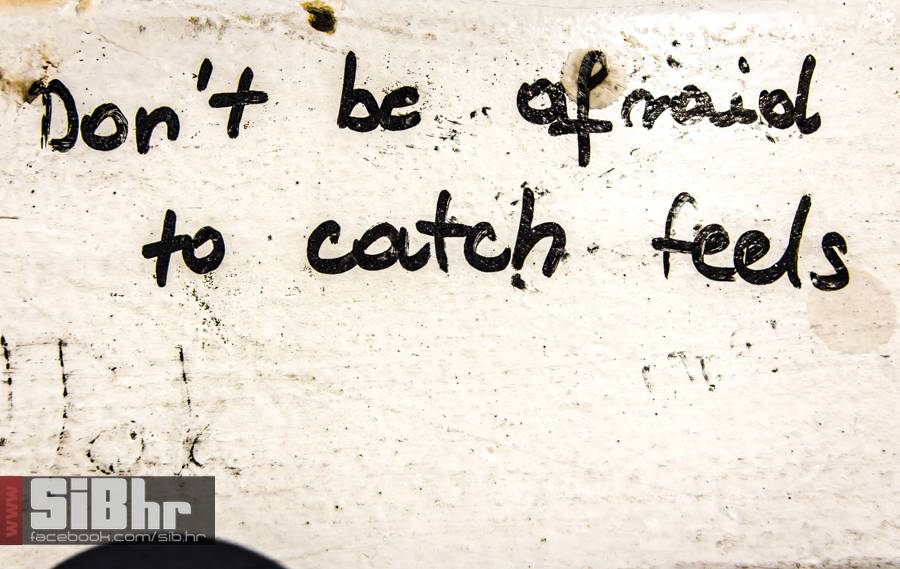 Don't be afraid
to catch feels
www
SiBhr
facebook.com/sib.hr